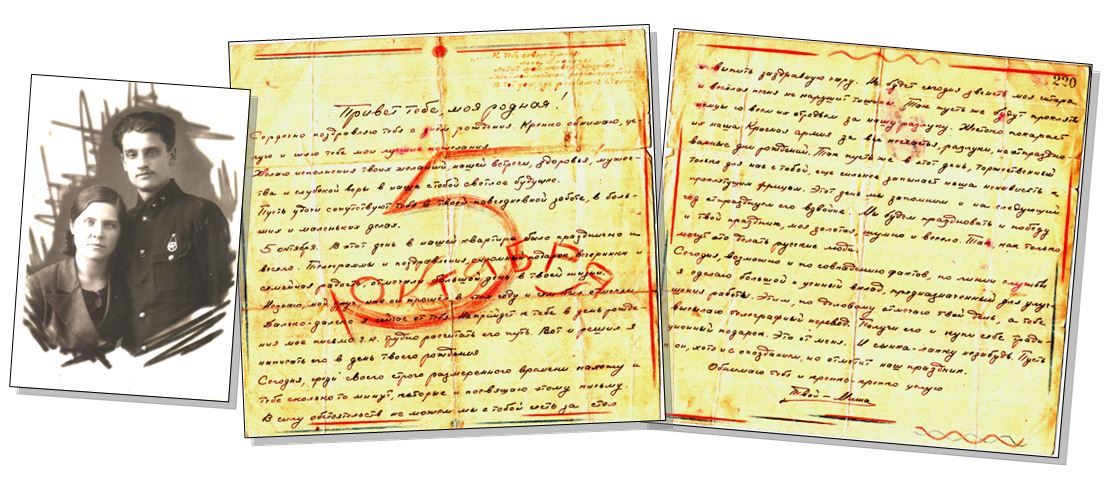 Привет тебе моя родная!
Сердечно поздравляю тебя с днём рождения. Крепко обнимаю, це-
лую и шлю тебе мои лучшие пожелания.
Желаю исполнения твоих желаний, нашей встречи, здоровья, мужест-
ва и глубокой веры в наше с тобой светлое будущее.
Пусть удачи сопутствуют тебе в твоей повседневной заботе, в боль-
ших и маленьких делах.
5 октября. В этот день в нашей квартире было празднично и
весело. Телеграммы и поздравления, скромный подарок, вечеринки и
семейная радость, отмечали большой день в твоей жизни.
Незнаю, мой друг, как он прошел в этом году и чем был отмечен
Далеко-далеко я сейчас от тебя. Не прийдет к тебе в день рожде-
ния мое письмо т.к. трудно расчитать его путь. Вот и решил я
написать его в день твоего рождения
Сегодня, среди своего строго размеренного времени нахожу и
тебе сколько то минут, которые и посвящаю этому письму.
В силу обстоятельств не можем мы с тобой сесть за стол
5
ОКТЯБРЯ
230
и выпить заздравную чару. Не будет сегодня звенеть моя гитара
и весёлая песня не нарушит тишины. Так пусть же будут прокляты
немцы со всем их отродьем за нашу разлуку. Жестоко покарает
их наша Красная армия за все несчастья, разлуки, не отпраздно-
ванные дни рождений. Так пусть же в этот день, торжественный
только для нас с тобой, еще сильнее запылает наша ненависть к
проклятущим фрицам. Этот день мы запомним и на следующий
год отпразднуем его вдвойне. Мы будем праздновать и победу
и твой праздник, моя золотая, шумно и весело. Так, как только
могут это делать русские люди.
Сегодня, возможно и по совпадению фактов, по линии службы
я сделаю большой и ценный вклад, предназначенный для улуч-
шения работы. Этим, по деловому отмечаю твой день, а тебе
высылаю телеграфный перевод. Получи его и купи себе тради-
ционный подарок. Это от меня. И сынка-лапку незабудь. Пусть
он, хотя и с опозданием, но отметит наш праздник.
Обнимаю тебя и крепко-крепко целую
Твой - Миша